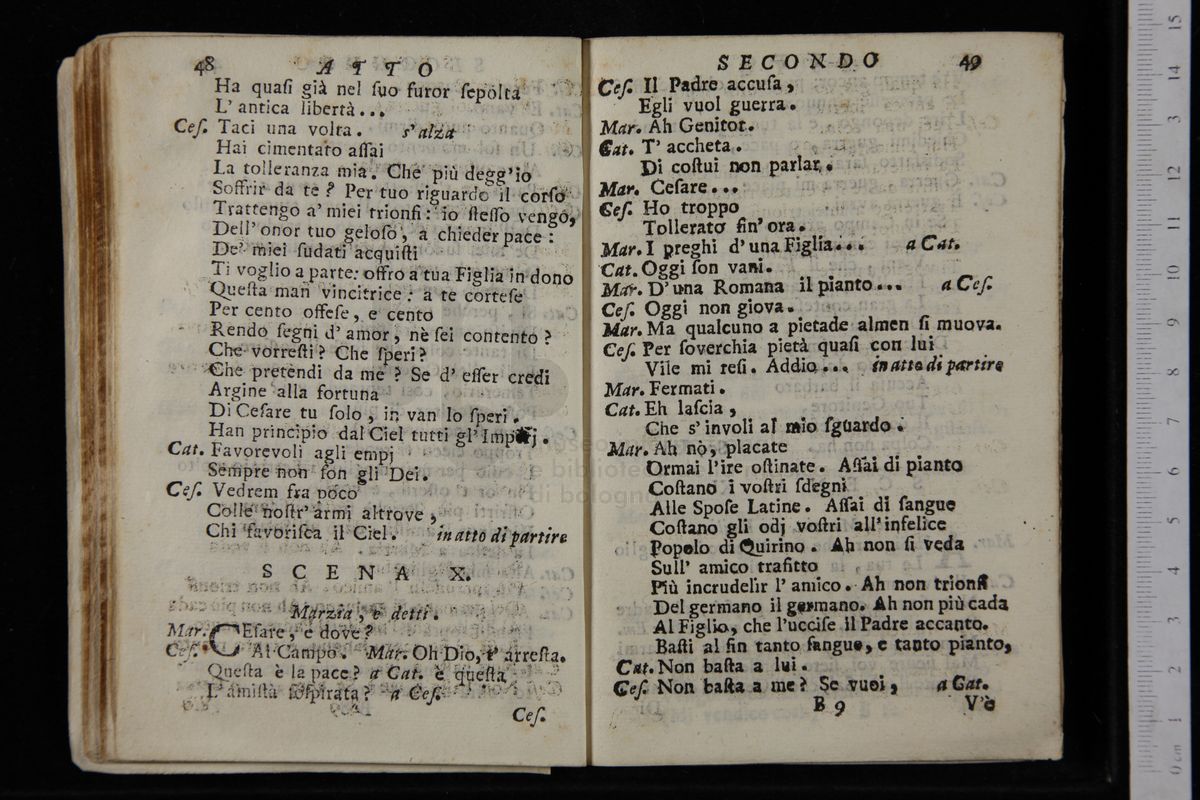 48 ATTO
Ha quaſi già nel ſuo furor ſepolta
L' antica libertà...
Ceſ. Taci una volta. s' alza
Hai cimentato aſſai
La tolleranza mia. Che più degg'io
Soffrir da te? Per tuo riguardo il corſo
Trattengo a' miei trionfi: io ſteſſo vengo,
Dell' onor tuo geloſo, a chieder pace:
De' miei ſudati acquiſti
Ti voglio a parte: offro a tua Figlia in dono
Queſta man vincitrice: a te corteſe
Per cento offeſe, e cento
Rendo ſegni d' amor, nè ſei contento?
Che vorreſti? Che ſperi?
Che pretendi da me? Se d' eſſer credi
Argine alla fortuna
Di Ceſare tu ſolo, in van lo ſperi.
Han principio dal Ciel tutti gl' Imperj.
Cat. Favorevoli agli empj
Sempre non ſon gli Dei.
Ceſ. Vedrem fra poco
Colle noſtr' armi altrove,
Chi favoriſca il Ciel. in atto di partire
SCENA X.
Marzia, e detti.
Mar. CEſare, e dove?
Ceſ. Al Campo. Mar. Oh Dio, t' arreſta.
Queſta è la pace? a Cat. è queſta
L' amiſtà ſoſpirata? a Ceſ.
Ceſ.
SECONDO 49
Ceſ. Il Padre accuſa,
Egli vuol guerra.
Mar. Ah Genitor.
Cat. T' accheta.
Di coſtui non parlar.
Mar. Ceſare...
Ceſ. Ho troppo
Tollerato fin' ora.
Mar. I preghi d' una Figlia... a Cat.
Cat. Oggi ſon vani.
Mar. D' una Romana il pianto... a Ceſ.
Ceſ. Oggi non giova.
Mar. Ma qualcuno a pietade almen ſi muova.
Ceſ. Per ſoverchia pietà quaſi con lui
Vile mi reſi. Addio... in atto di partire
Mar. Fermati.
Cat. Eh laſcia,
Che s' involi al mio ſguardo.
Mar. Ah nò, placate
Ormai l'ire oſtinate. Aſſai di pianto
Coſtano i voſtri ſdegni
Alle Spoſe Latine. Aſſai di ſangue
Coſtano gli odj voſtri all' infelice
Popolo di Quirino. Ah non ſi veda
Sull' amico trafitto
Più incrudelir l' amico. Ah non trionfi
Del germano il germano. Ah non più cada
Al Figlio, che l'ucciſe il Padre accanto.
Baſti al fin tanto ſangue, e tanto pianto,
Cat. Non baſta a lui.
Ceſ. Non baſta a me? Se vuoi, a Cat.
B 9 V'è